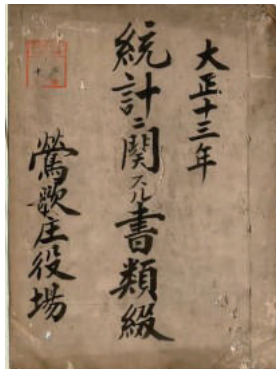 大正十三年
統計ニ関スル書類綴
鶯歌庄役場